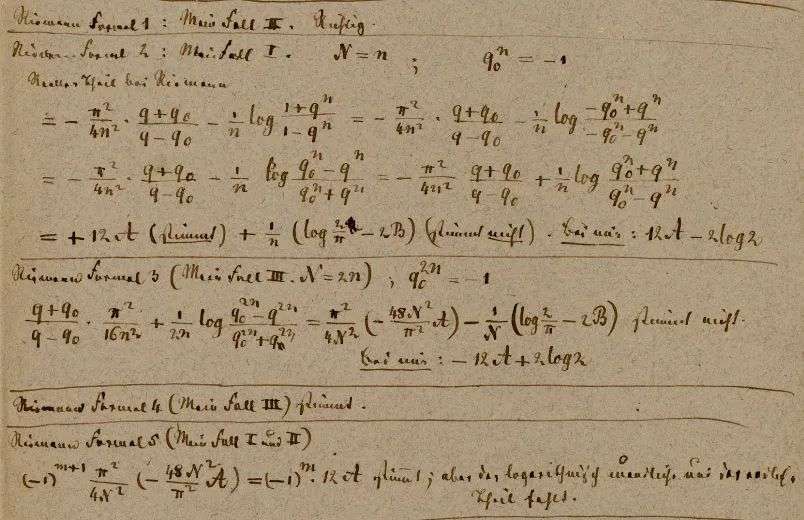 Riemann Formel 1 : Mein Fall III. Richtig.
Riemann Formel 2 : Mein Fall I. N = n ; q₀ⁿ = -1
Reeller Theil bei Riemann
= - π²/4n² · (q+q₀)/(q-q₀) - 1/n log (1+qⁿ)/(1-qⁿ) = - π²/4n² · (q+q₀)/(q-q₀) - 1/n log (-q₀ⁿ+qⁿ)/(-q₀ⁿ-qⁿ)
= - π²/4n² · (q+q₀)/(q-q₀) - 1/n log (q₀ⁿ-qⁿ)/(q₀ⁿ+qⁿ) = - π²/4n² (q+q₀)/(q-q₀) + 1/n log (q₀ⁿ+qⁿ)/(q₀ⁿ-qⁿ)
= + 12A (stimmt) + 1/n (log 2/π - 2B) (stimmt nicht). Bei mir : 12A - 2log2
Riemann Formel 3 (Mein Fall III. N = 2n) ; q₀²ⁿ = -1
(q+q₀)/(q-q₀) · π²/16n² + 1/2n log (q₀²ⁿ-q²ⁿ)/(q₀²ⁿ+q²ⁿ) = π²/4N² (-48N²/π² A) - 1/N (log 2/π - 2B) stimmt nicht.
Bei mir : - 12A + 2log2
Riemann Formel 4 (Mein Fall III) stimmt.
Riemann Formel 5 (Mein Fall I und II)
(-1)ᵐ⁺¹ π²/4N² (-48N²/π² A) = (-1)ᵐ · 12A stimmt ; aber das logarithmisch unendliche und das
Theil fehlt.